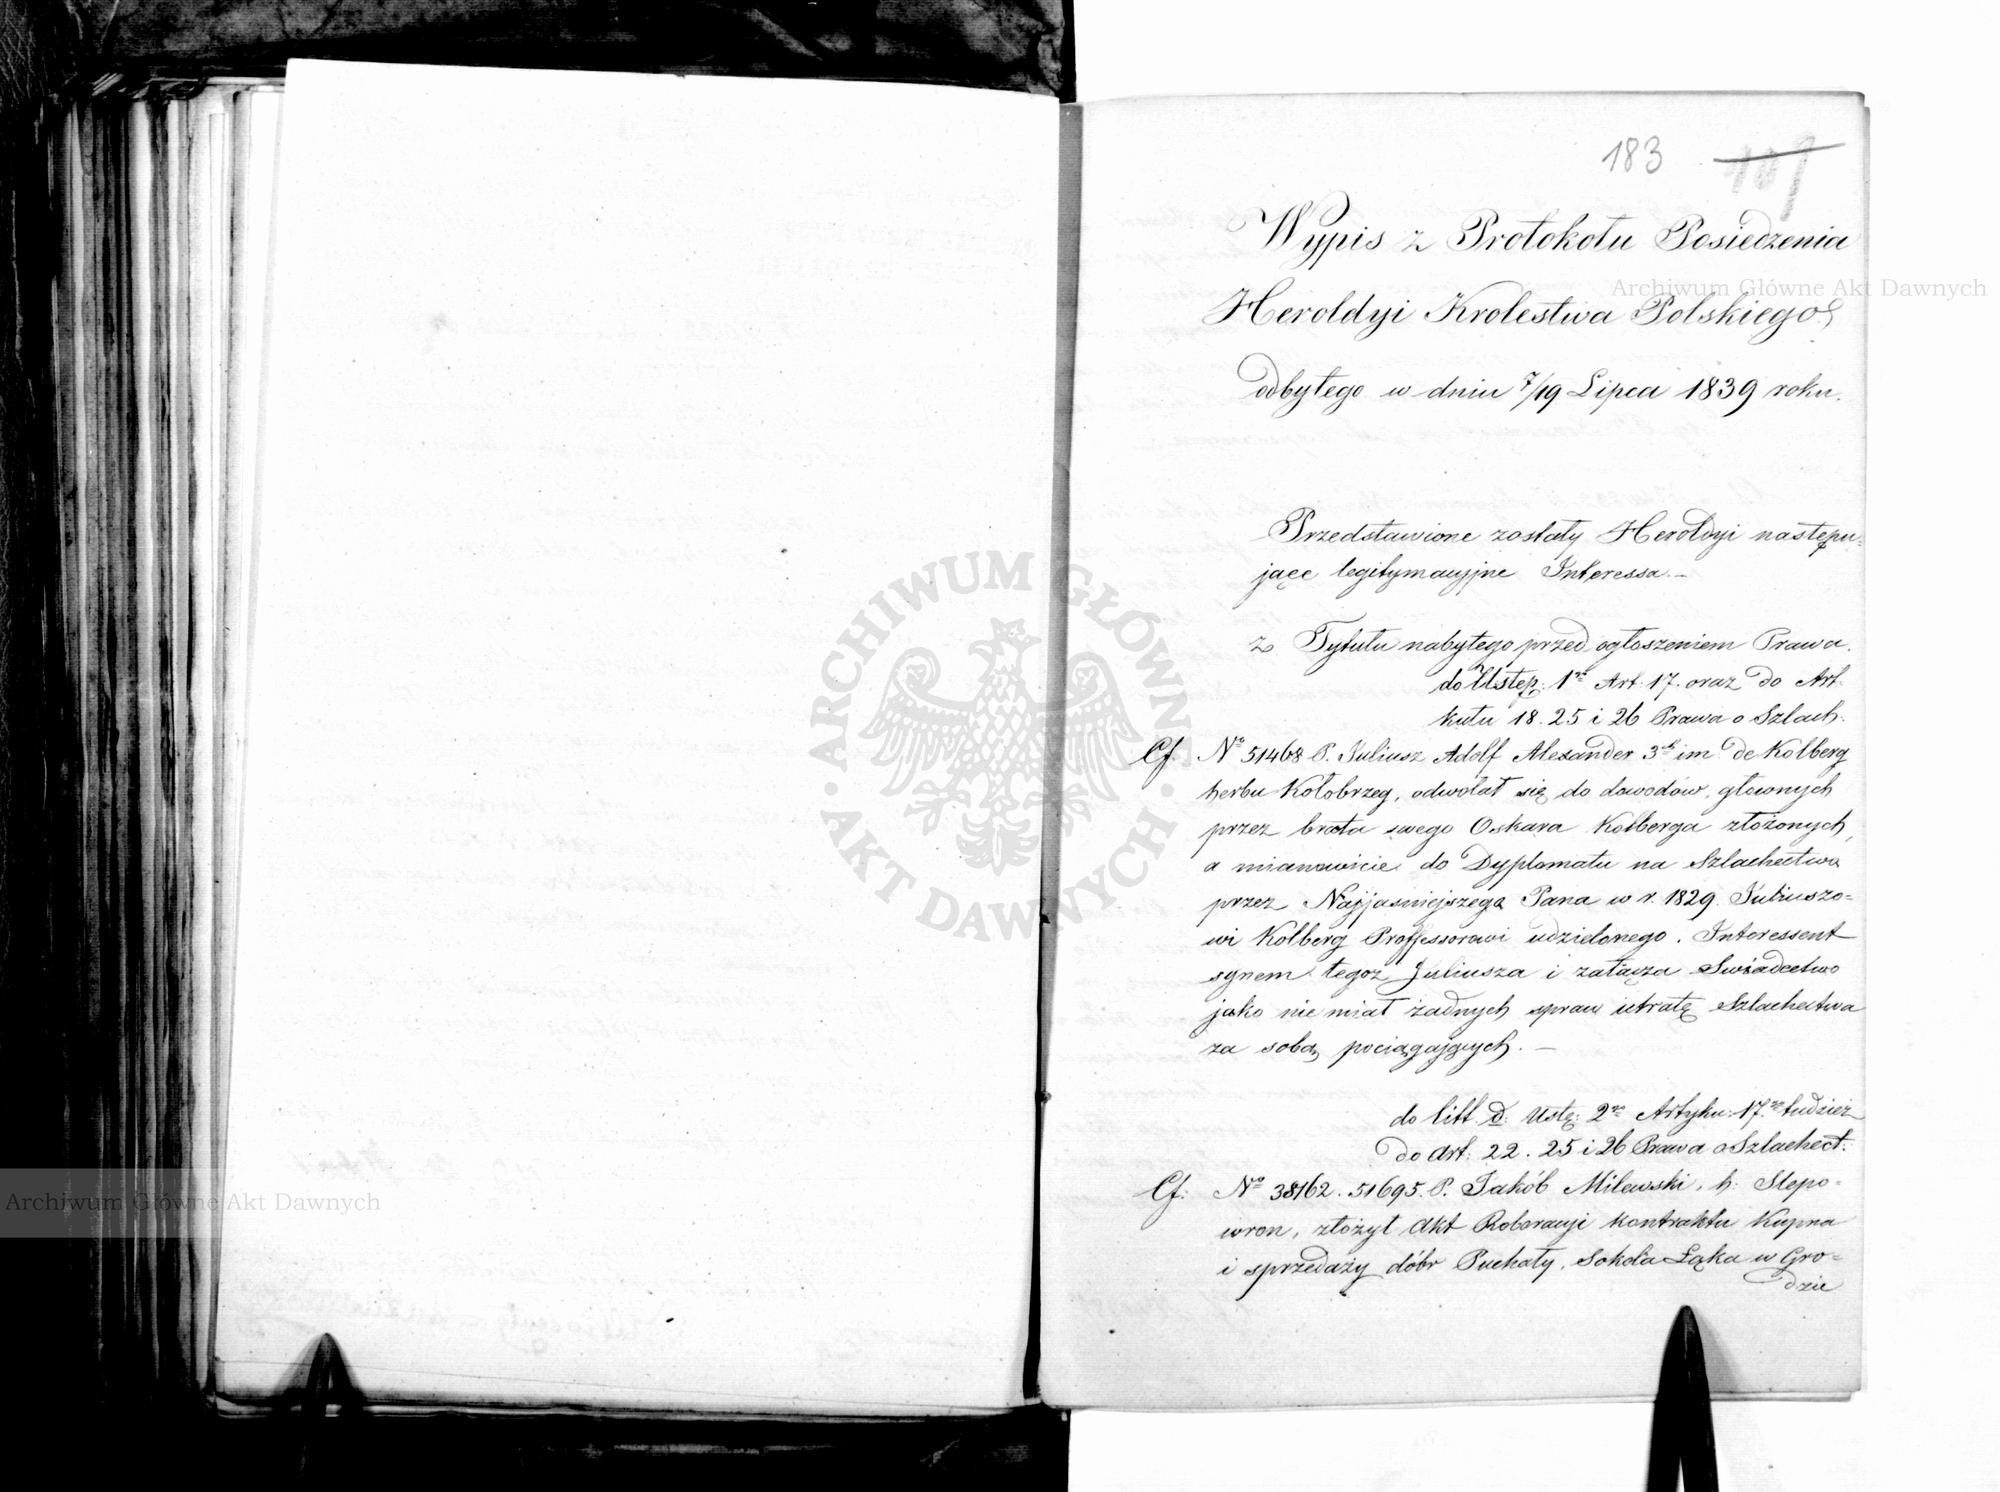 183 109
Wypis z Protokołu Posiedzenia
Archiwum Główne Akt Dawnych
Heroldyi Krolestwa Polskiego,
odbytego w dniu 7/19 Lipca 1839 roku.
Przedstawione zostały Heroldyi następu=
jące legitymacyjne Interessa.—
z Tytułu nabytego przed ogłoszeniem Prawa.
do Ustęp: 1º Art: 17. oraz do Art-
kułu 18. 25 i 26 Prawa o Szlach:
Cf: Nº 51468 P. Juliusz Adolf Alexander 3ch im. de Kolberg
herbu Kołobrzeg, odwołał się do dowodów, głównych
przez brata swego Oskara Kolberga złożonych,
a mianowicie do Dyplomatu na Szlachectwo
przez Najjaśniejszego Pana w r. 1829. Juliuszo=
wi Kolberg Professorowi udzielonego. Interessent
synem tegoż Juliusza i załącza Swiadectwo
jako nie miał żadnych spraw utratę Szlachectwa
za sobą pociągających. —
do litt. d: Ustę: 2º Artyku: 17.º tudzież
do Art: 22. 25 i 26 Prawa o Szlachect:
Cf: Nº 38162. 51695. P. Jakób Milewski, h: Slepo=
wron, złożył Akt Roboracyi kontraktu Kupna
i sprzedaży dóbr Puchały, Sokola Łąka w Gro=
dzie
ARCHIWUM GŁÓWNE AKT DAWNYCH
Archiwum Główne Akt Dawnych